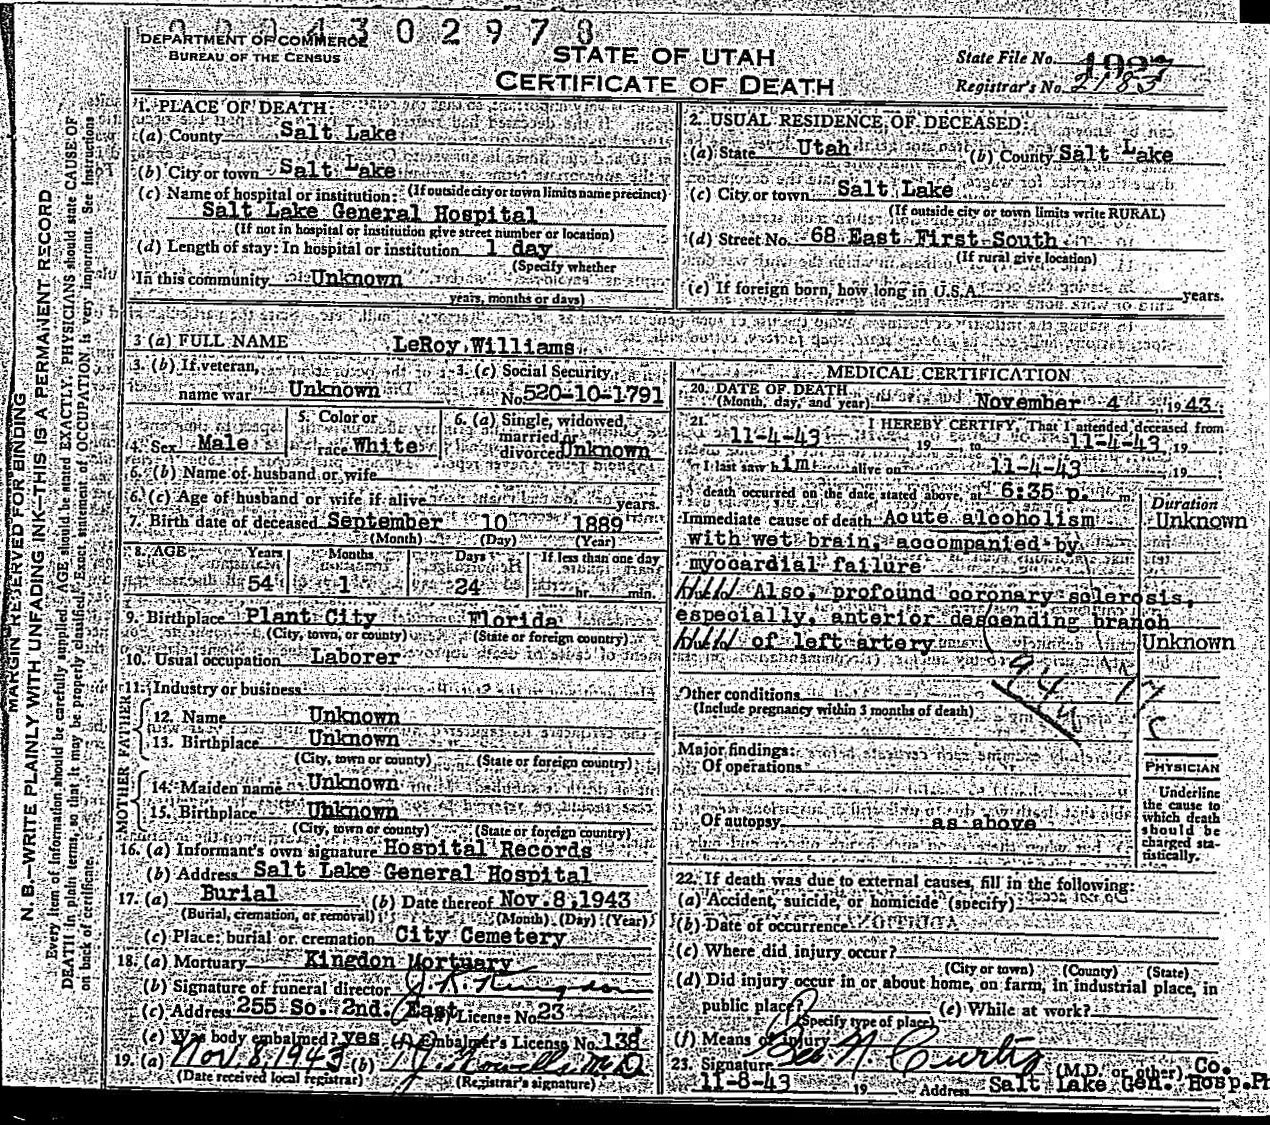 0 0 2 4 3 0 2 9 7 8
DEPARTMENT OF COMMERCE
BUREAU OF THE CENSUS
STATE OF UTAH
CERTIFICATE OF DEATH
State File No.
Registrar's No. 2183
MARGIN RESERVED FOR BINDING
N. B.—WRITE PLAINLY WITH UNFADING INK—THIS IS A PERMANENT RECORD
Every item of information should be carefully supplied. AGE should be stated EXACTLY. PHYSICIANS should state CAUSE OF
DEATH in plain terms, so that it may be properly classified. Exact statement of OCCUPATION is very important. See instructions
on back of certificate.
1. PLACE OF DEATH:
(a) County Salt Lake
(b) City or town Salt Lake
(If outside city or town limits name precinct)
(c) Name of hospital or institution:
Salt Lake General Hospital
(If not in hospital or institution give street number or location)
(d) Length of stay: In hospital or institution 1 day
(Specify whether
In this community Unknown
years, months or days)
2. USUAL RESIDENCE OF DECEASED:
(a) State Utah (b) County Salt Lake
(c) City or town Salt Lake
(If outside city or town limits write RURAL)
(d) Street No. 68 East First South
(If rural give location)
(e) If foreign born, how long in U.S.A. years.
3 (a) FULL NAME LeRoy Williams
3. (b) If veteran, name war Unknown
3. (c) Social Security No. 520-10-1791
4. Sex Male
5. Color or race White
6. (a) Single, widowed, married or divorced Unknown
6. (b) Name of husband or wife
6. (c) Age of husband or wife if alive years.
7. Birth date of deceased September 10 1889
(Month) (Day) (Year)
8. AGE Years Months Days If less than one day
54 1 24 hr. min.
9. Birthplace Plant City Florida
(City, town, or county) (State or foreign country)
10. Usual occupation Laborer
11. Industry or business
FATHER
12. Name Unknown
13. Birthplace Unknown
(City, town or county) (State or foreign country)
MOTHER
14. Maiden name Unknown
15. Birthplace Unknown
(City, town or county) (State or foreign country)
16. (a) Informant's own signature Hospital Records
(b) Address Salt Lake General Hospital
17. (a) Burial (b) Date thereof Nov. 8, 1943
(Burial, cremation, or removal) (Month) (Day) (Year)
(c) Place: burial or cremation City Cemetery
18. (a) Mortuary Kingdon Mortuary
(b) Signature of funeral director J. R. Kingdon
(c) Address 255 So. 2nd. East (d) License No. 23
(e) Was body embalmed? yes (f) Embalmer's License No. 138
19. (a) Nov 8, 1943 (b) M.D.
(Date received local registrar) (Registrar's signature)
MEDICAL CERTIFICATION
20. DATE OF DEATH
(Month, day, and year) November 4 , 1943.
21. I HEREBY CERTIFY, That I attended deceased from
11-4-43 19 , to 11-4-43 , 19
I last saw him alive on 11-4-43 19
death occurred on the date stated above, at 6:35 p. m.
Duration
Immediate cause of death Acute alcoholism Unknown
with wet brain, accompanied by
myocardial failure
Also, profound coronary sclerosis,
especially, anterior descending branch
of left artery Unknown
94
Other conditions
(Include pregnancy within 3 months of death)
Major findings:
Of operations
Of autopsy as above
PHYSICIAN
Underline
the cause to
which death
should be
charged sta-
tistically.
22. If death was due to external causes, fill in the following:
(a) Accident, suicide, or homicide (specify)
(b) Date of occurrence
(c) Where did injury occur?
(City or town) (County) (State)
(d) Did injury occur in or about home, on farm, in industrial place, in
public place? (e) While at work?
(Specify type of place)
(f) Means of injury
23. Signature Geo N. Curtis (M.D. or other) Co.
11-8-43 19 Address Salt Lake Gen. Hosp.